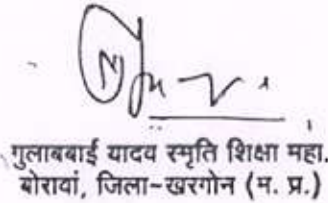 गुलाबबाई यादव स्मृति शिक्षा महा.
बोरावां, जिला-खरगोन (म. प्र.)